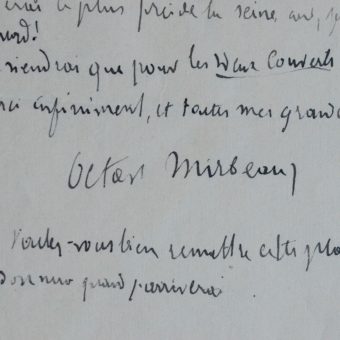 le plus près de la scène, car, je
sourd!
viendrai que pour les Deux Couverts
ci infiniment, et toutes mes grand
Octave Mirbeau
Voulez-vous bien remettre cette pla
quand j'arriverai